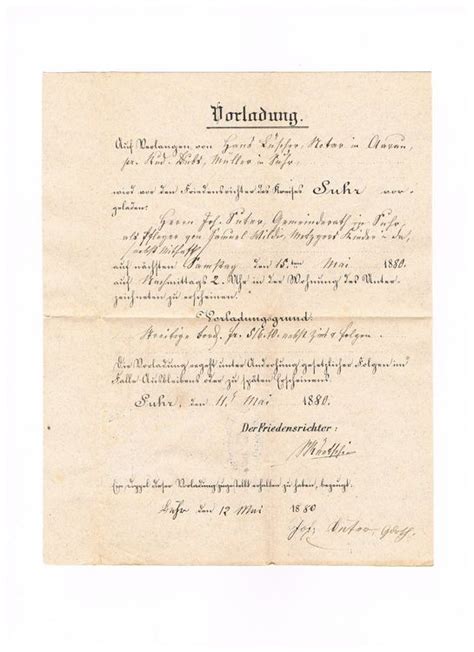 Vorladung.
Auf Verlangen von Hans Lüscher, Notar in Aarau,
pr. Rud. Müller in Suhr,
wird vor den Friedensrichter des Kreises Suhr vor-
geladen:
Herrn Joh. Suter, Gemeinderath in Suhr
als Pfleger von Samuel Metzgers Kinder
auf nächsten Samstag den 15. ten Mai 1880.
auf Nachmittags 2 Uhr in der Wohnung des Unter-
zeichneten zu erscheinen.
Vorladungsgrund
Streitige fr. nebst Zins & Folgen.
Die Vorladung ergeht unter Androhung gesetzlicher Folgen im
Falle Ausbleibens oder zu späten Erscheinens.
Suhr, den 11. Mai 1880.
Der Friedensrichter:
Ein Doppel dieser Vorladung zugestellt erhalten zu haben, bezeugt:
Suhr den 12 Mai 1880
Joh. Suter